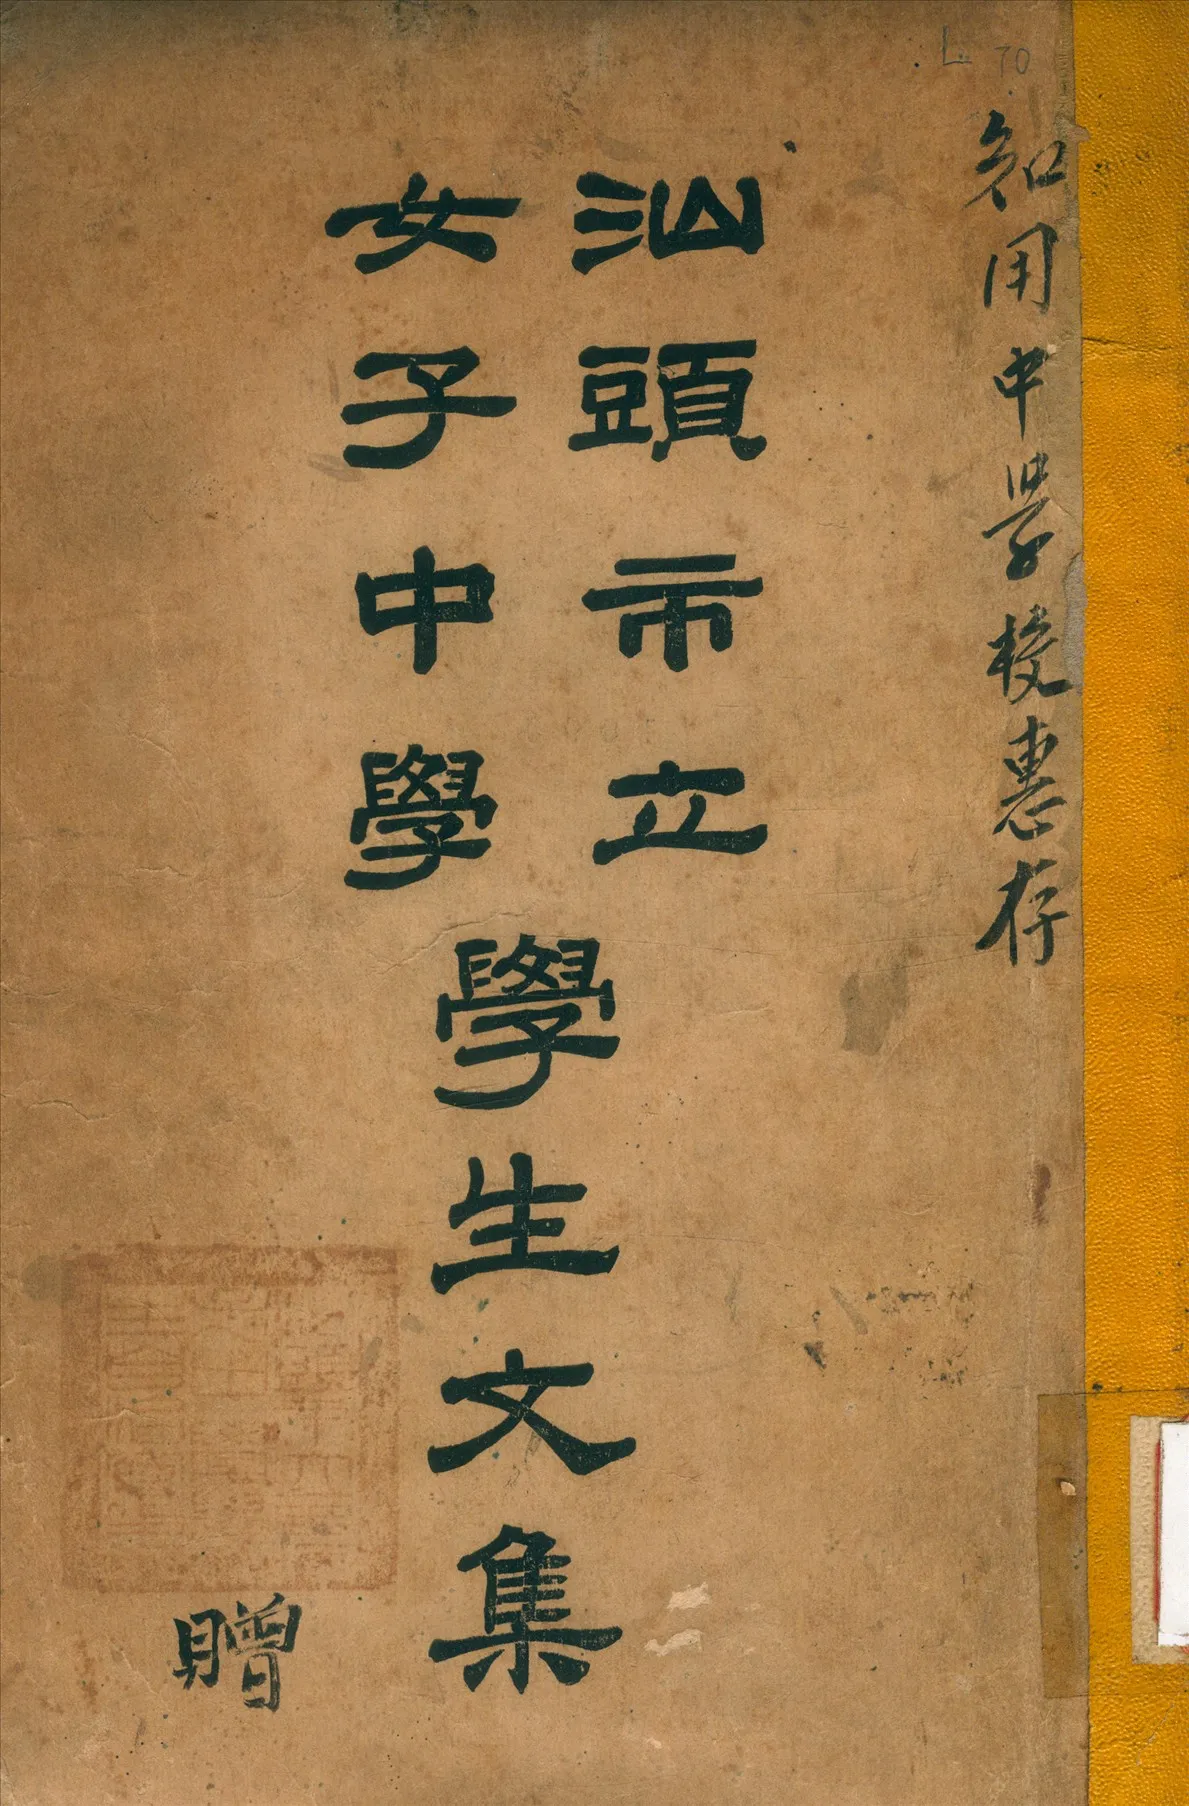 L. 70
知用中学校惠存
汕頭市立
女子中學
學生文集
贈